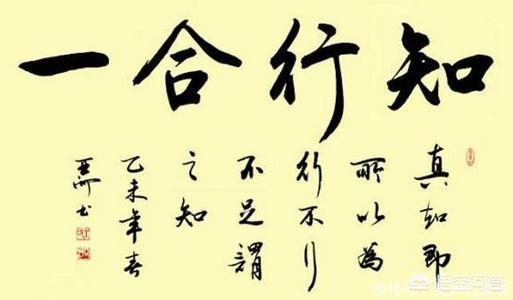 知行合一
真知即
所以為
行不行
不足謂
之知
乙未年春
书
悟空问答